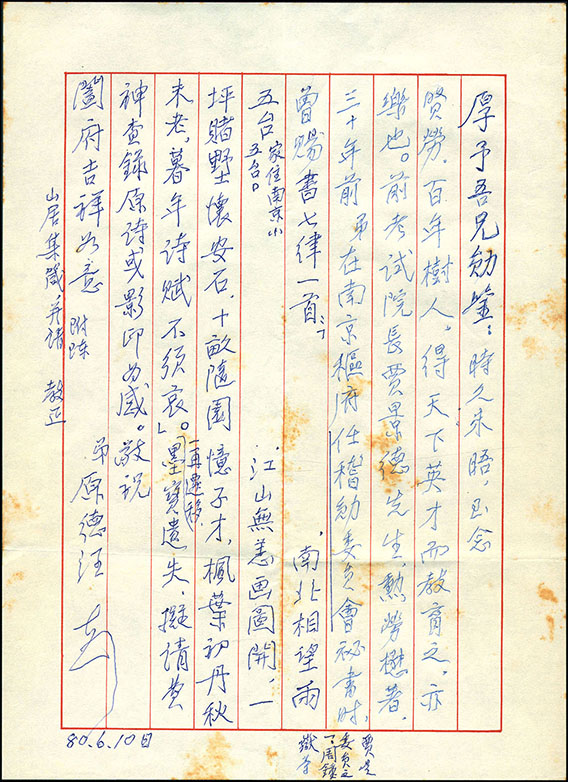 厚予吾兄勛鑒：時久未晤，至念
賢勞，百年樹人。得天下英才而教育之，亦
樂也。前考試院長賈景德先生，勲勞懋著，
三十年前 弟在南京樞府任稽勛委員會秘書時，
曾賜書七律一首：「 ，南北相望兩
五台家住南京小五台。 江山無恙画圖開，一
坪賭墅懷安石，十畝隨園憶子才，楓葉初丹秋
未老，暮年诗賦不須哀」。墨寶一再遷移遺失，擬请費
神查錄原诗或影印为感。敬祝
闔府吉祥如意 附陳
山居集 并请 教正
弟 原德汪
80.6.10日
賈
委員之